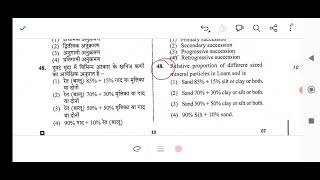 (1) प्राथमिक अनुक्रमण
(2) द्वितीयक अनुक्रमण
(3) अनुगामी अनुक्रमण
(4) प्रतिगामी अनुक्रमण
48. दुमट मृदा में विभिन्न आकार के खनिज कणों
का आपेक्षिक अनुपात है -
(1) रेत (बालू) 85% + 15% गाद या मृत्तिका
या दोनों
(2) रेत (बालू) 70% + 30% मृत्तिका या गाद
या दोनों
(3) रेत (बालू) 50% + 50% मृत्तिका या गाद
या दोनों
(4) 90% गाद + 10% रेत (बालू)
(1) Primary succession
(2) Secondary succession
(3) Progressive succession
(4) Retrogressive succession
48. Relative proportion of different sized
mineral particles in Loam soil is
(1) Sand 85% + 15% silt or clay or both.
(2) Sand 70% + 30% clay or silt or both.
(3) Sand 50% + 50% clay or silt or both.
(4) 90% Silt + 10% sand.
10
13
07